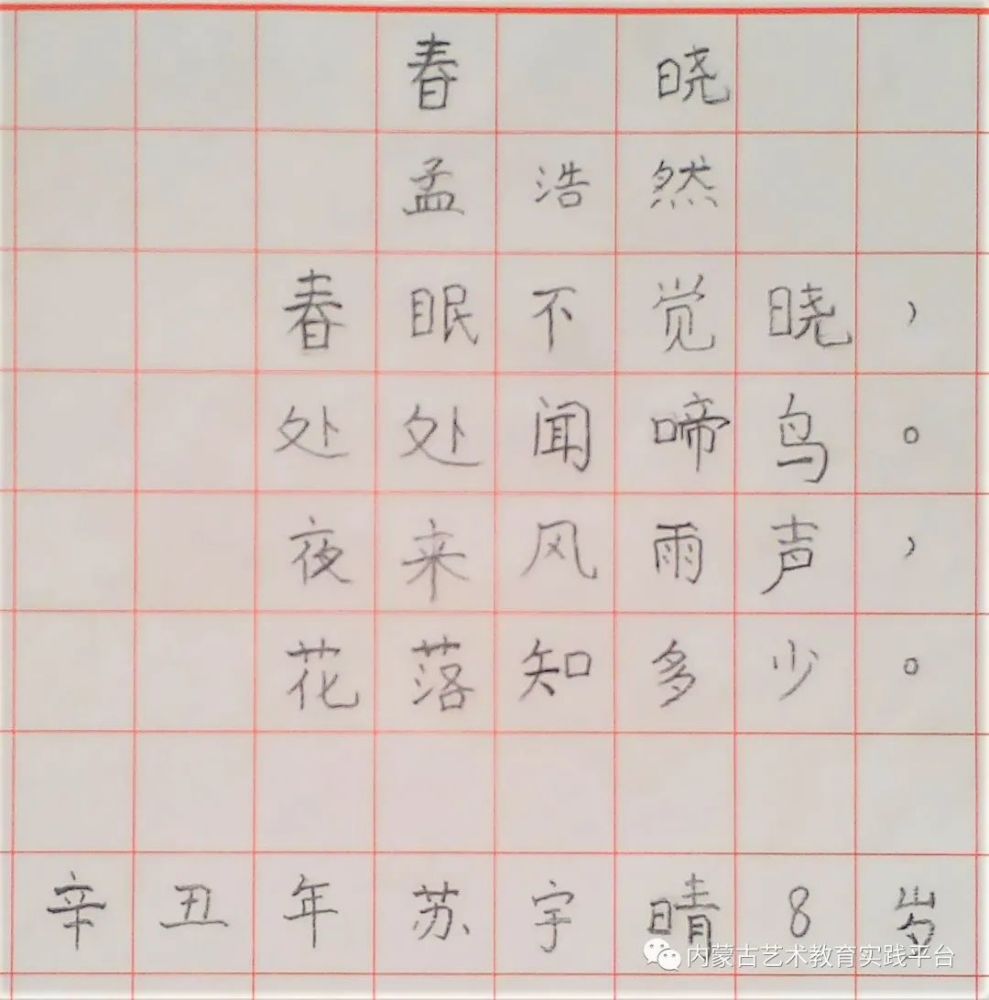 春晓
孟浩然
春眠不觉晓，
处处闻啼鸟。
夜来风雨声，
花落知多少。
辛丑年苏宇晴8岁
内蒙古艺术教育实践平台